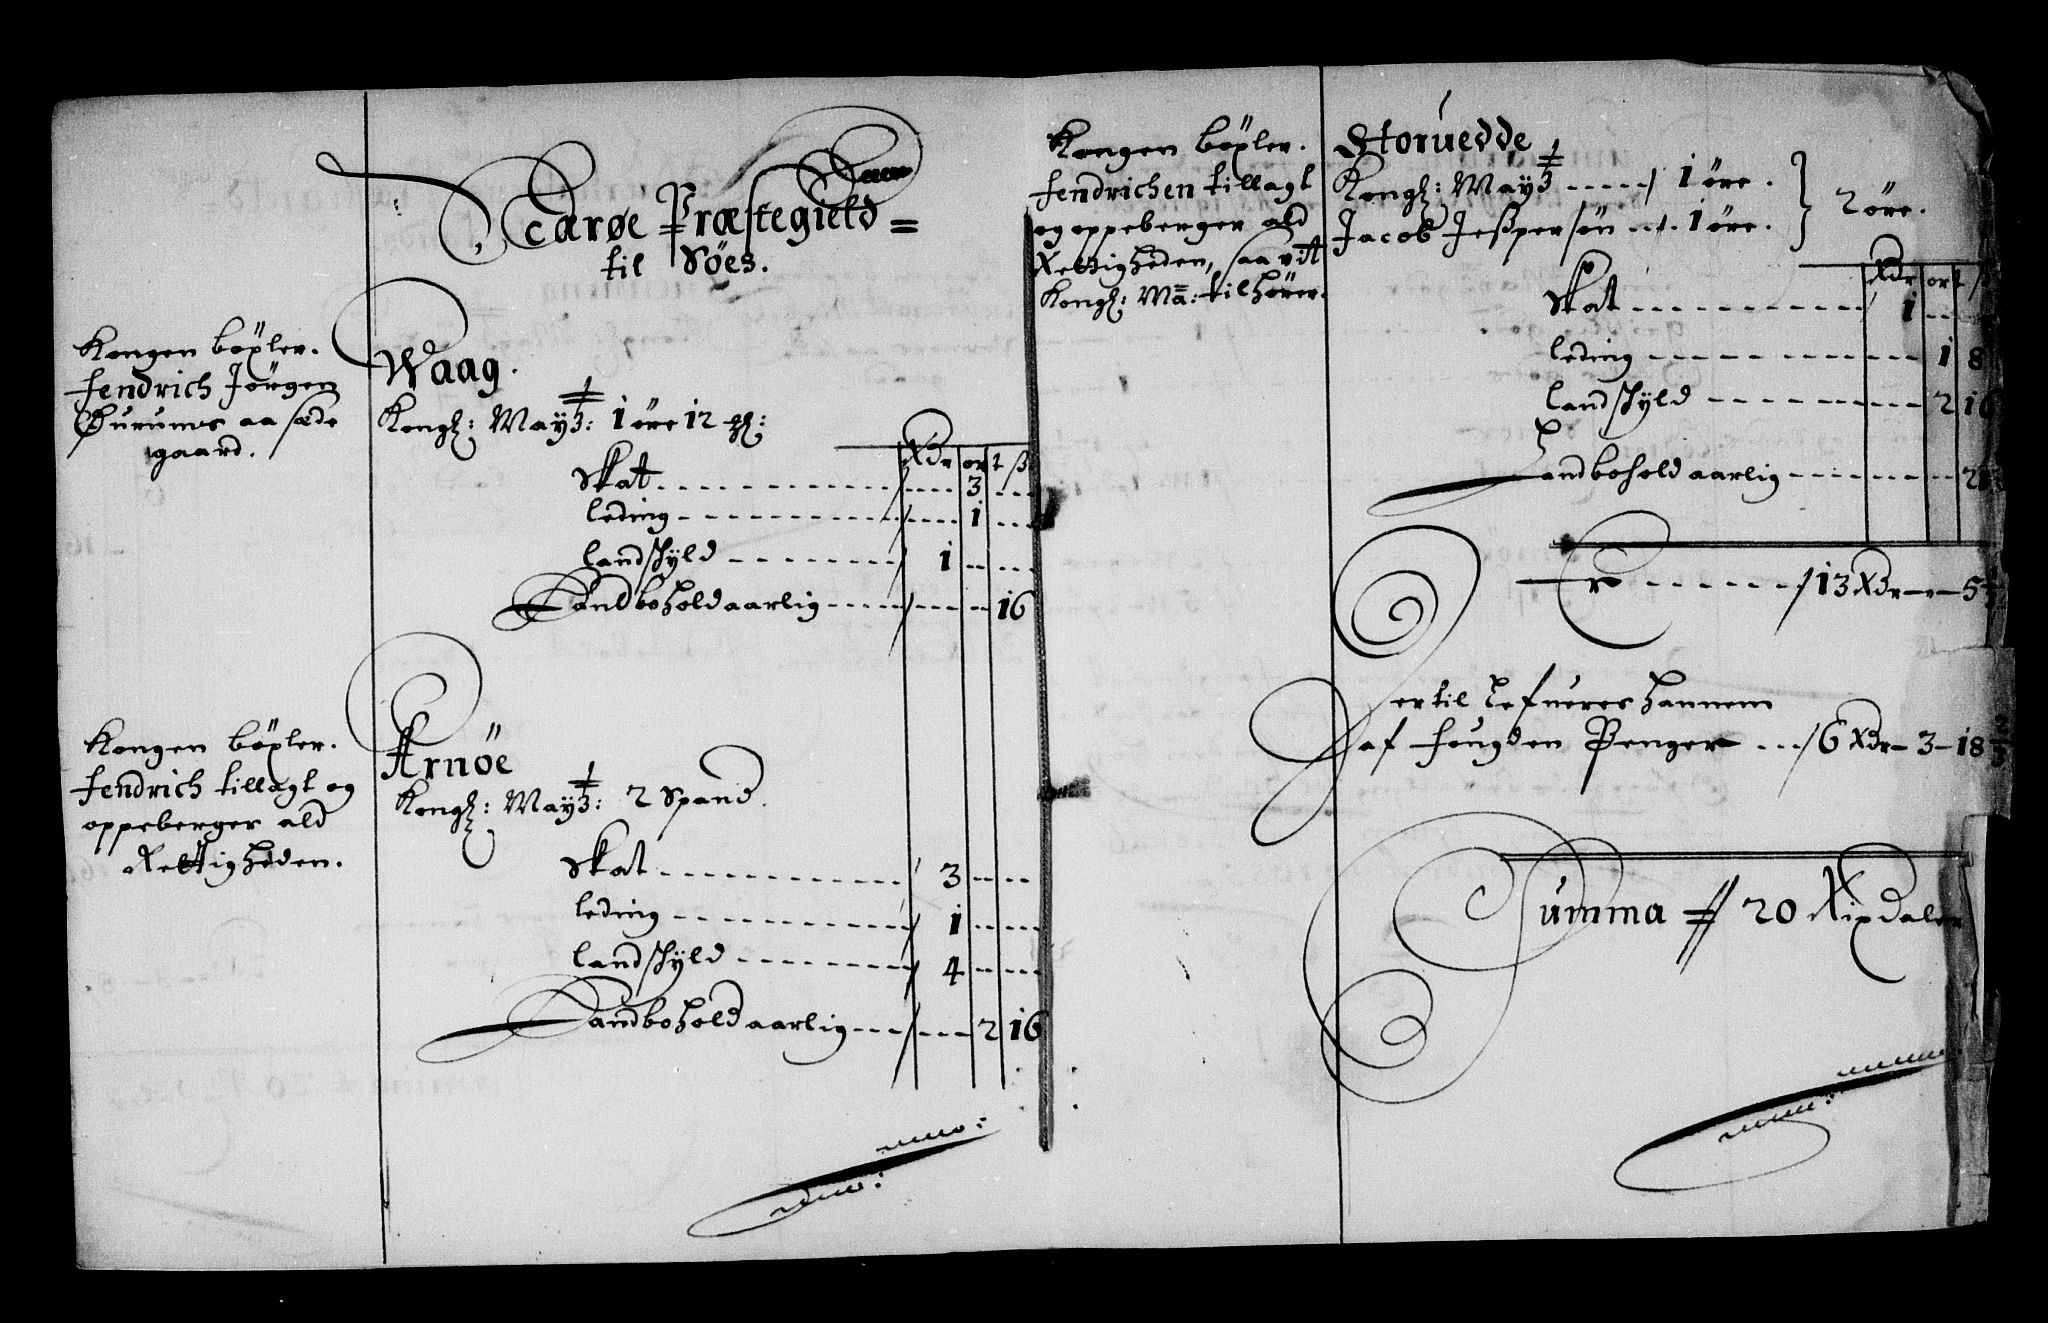 Edøe Præstegield
til Söes.
Kongen böxler.
fendrich Jörgen
aa sæde
gaard.
Waag.
Kongl: Maytz: 1 öre 12 pl:
Rdr ort ß
Skat 3
leding 1
landschÿld 1
Landbohold aarlig 16
Kongen böxler.
fendrich tillagt og
oppeberger ald
Rettigheden.
Arnöe
Kongl: Maytz: 2 Spand.
Skat 3
leding 1
landschÿld 4
Landbohold aarlig 2 16
Kongen böxler.
fendrichen tillagt
og oppeberger ald
Rettigheden, saa vit
Kongl: Ma: tilhörer.
Storuedde
Kongl: Maytz 1 öre.
Jacob Jeßpersön 1 öre.
2 öre.
Rdr ort ß
Skat 1
leding 1 8
landschÿld 2 16
Landbohold aarlig 21
Er 13 Rdr 5
Hertil Lefueres hannem
af fougden Penger 6 Rdr 3 18 2/3
Summa 20 Rixdaler